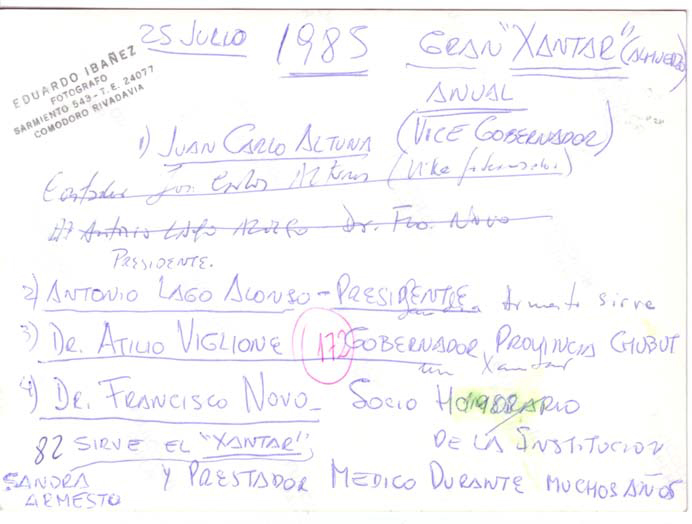 25 JULIO 1985 GRAN "XANTAR" (ALMUERZO)
ANUAL
EDUARDO IBAÑEZ
FOTOGRAFO
SARMIENTO 543 - T.E. 24077
COMODORO RIVADAVIA
1) JUAN CARLO ALTUNA (VICE GOBERNADOR)
Carlos
Antonio LAGO Dr. Fco. Novo
PRESIDENTE.
2) ANTONIO LAGO ALONSO - PRESIDENTE sirve
3) DR. ATILIO VIGLIONE 172 GOBERNADOR PROVINCIA CHUBUT
un Xantar
4) DR. FRANCISCO NOVO SOCIO HONORARIO
82 SIRVE EL "XANTAR", DE LA INSTITUCION
SANDRA Y PRESTADOR MEDICO DURANTE MUCHOS AÑOS
ARMESTO